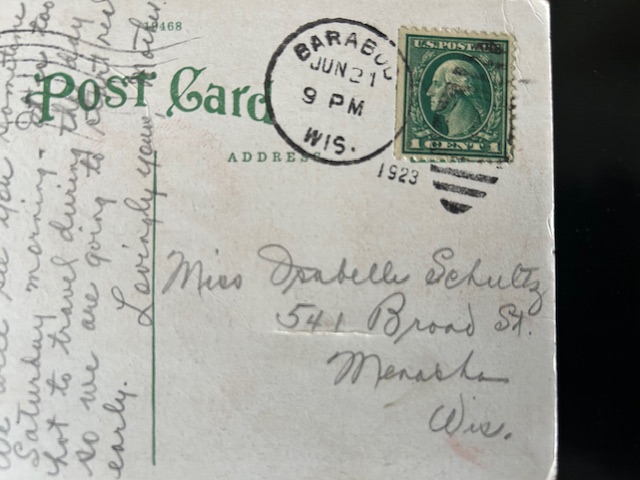 19468
Post Card
ADDRESS
BARABOO
JUN 21
9 PM
WIS.
1923
U.S. POSTAGE
1 CENT 1
Miss Isabelle Schultz
541 Broad St.
Menasha
Wis.
We will see you sometime
Saturday morning. It is too
hot to travel during the day
so we are going to start real
early.
Lovingly your Mother